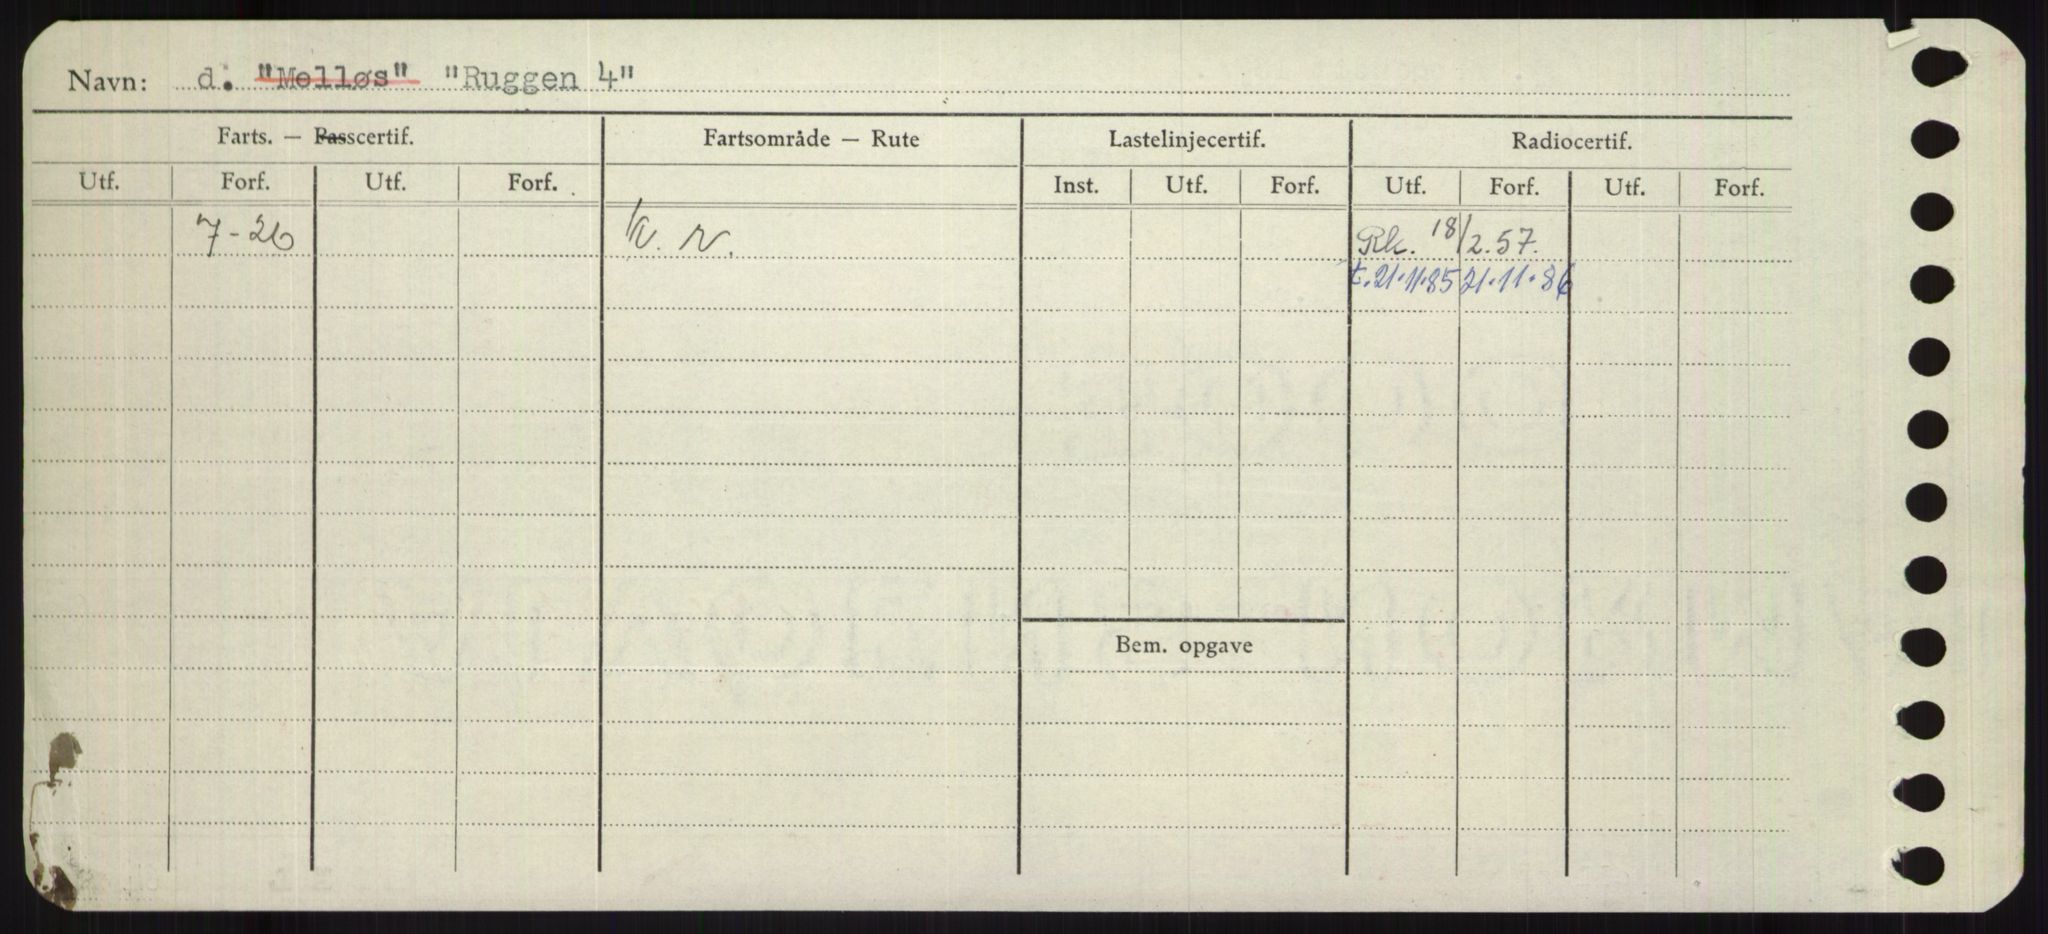 Navn: d. "Melløs" "Ruggen 4"
Farts. — Passcertif. Fartsområde — Rute Lastelinjecertif. Radiocertif.
Utf. Forf. Utf. Forf. Inst. Utf. Forf. Utf. Forf. Utf. Forf.
7-26 Rk. 18/2.57.
t.21.11.85 21.11.86
Bem. opgave